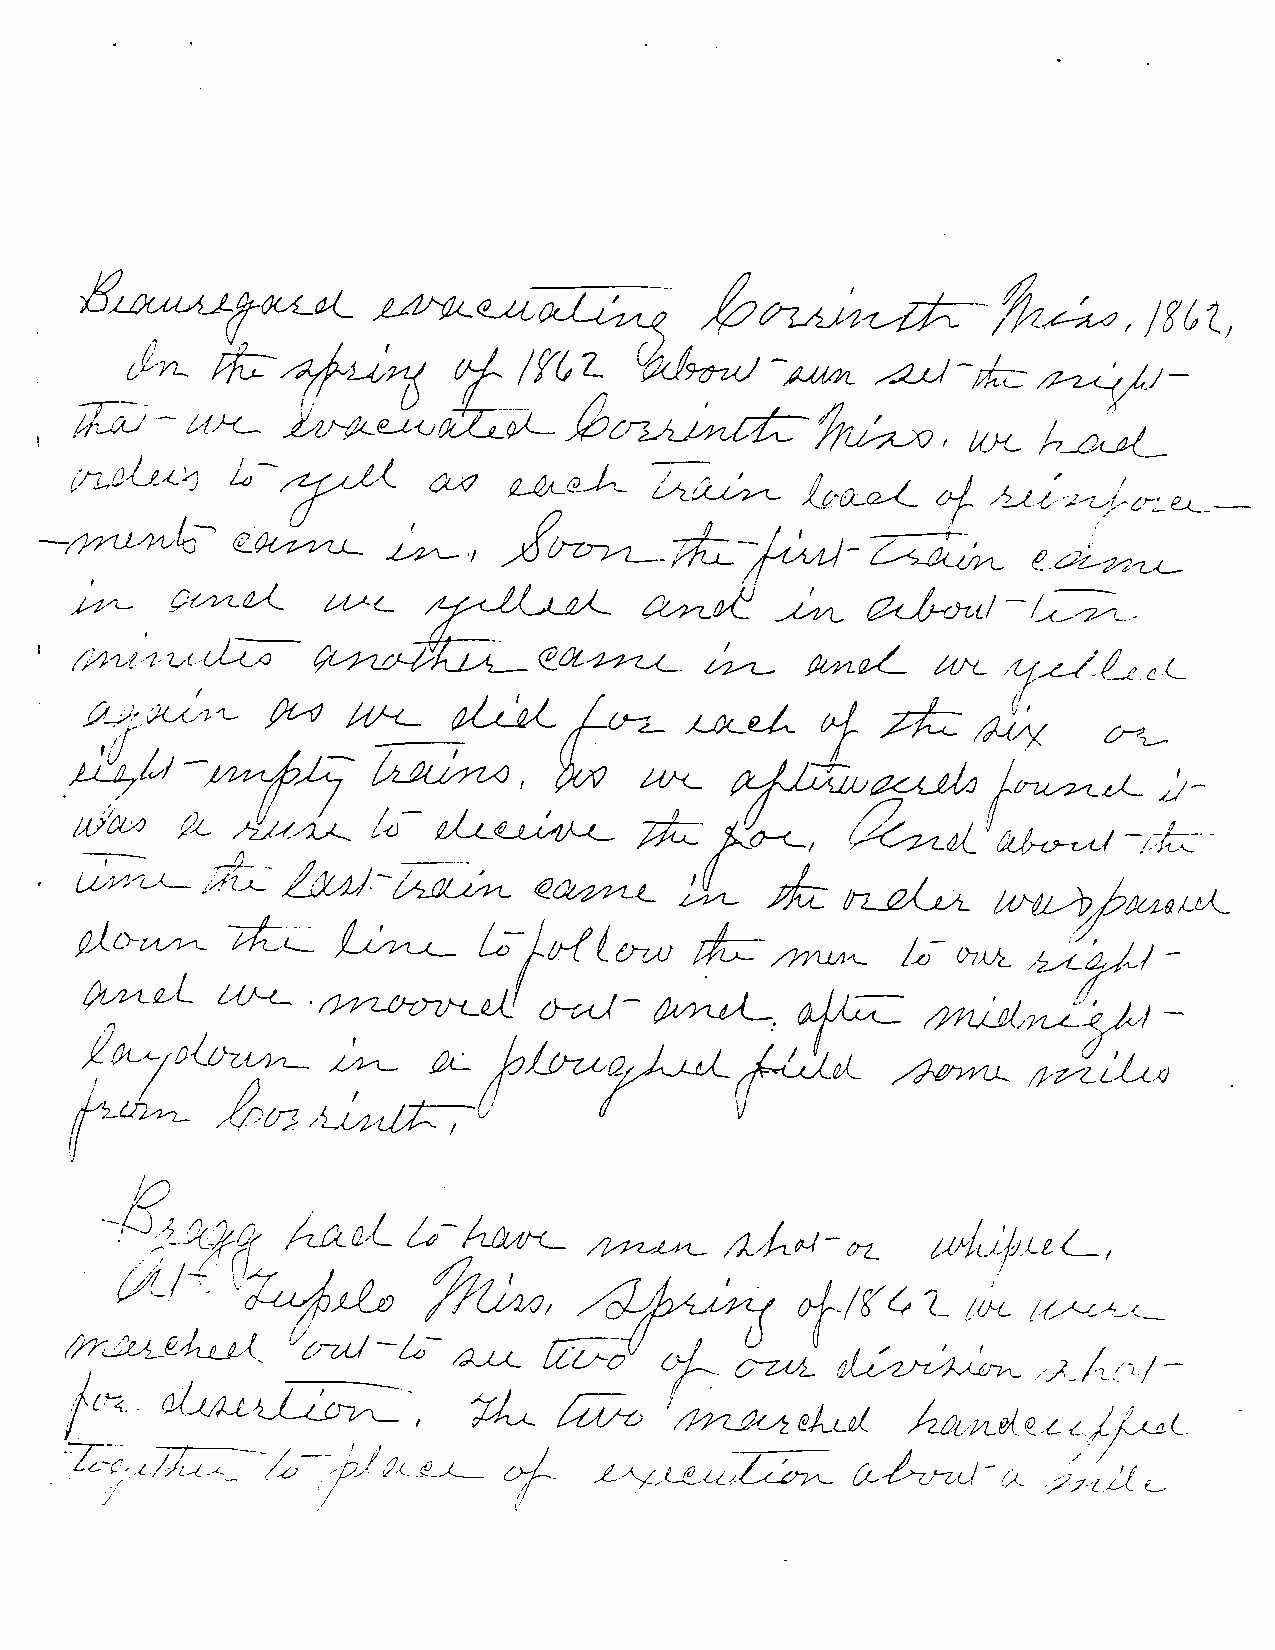 Beauregard evacuating Corrinth Miss, 1862,
In the spring of 1862 about sun set the night
that we evacuated Corrinth Miss, we had
orders to yell as each train load of reinforce-
-ments came in, Soon the first train came
in and we yelled and in about ten
minutes another came in and we yelled
again as we did for each of the six or
eight empty trains, as we afterwards found it
was a ruse to deceive the foe, And about the
time the last train came in the order was passed
down the line to follow the men to our right
and we mooved out and, after midnight
lay down in a ploughed field some miles
from Corrinth,
Bragg had to have men shot or whiped,
At Tupelo Miss, Spring of 1862 we were
marched out to see two of our division shot
for desertion, The two marched handcuffed
together to place of execution about a mile